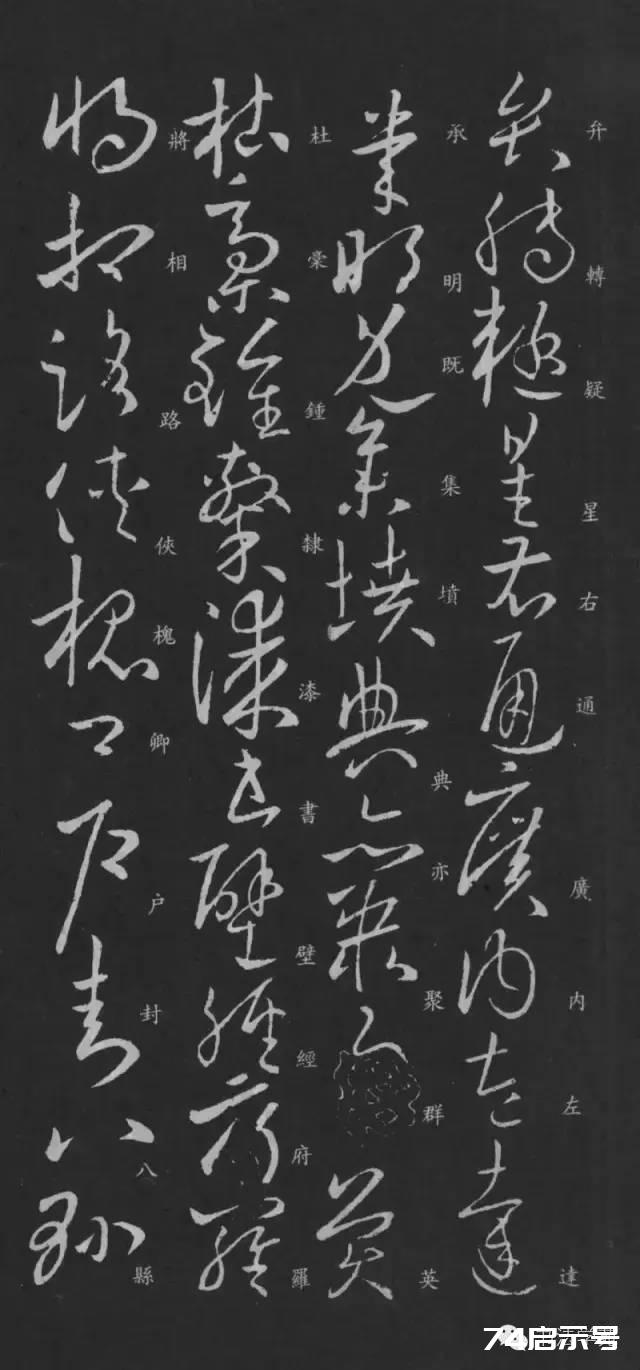 弁轉疑星右通廣内左達
承明既集墳典亦聚群英
杜稾鍾隸漆書壁經府羅
將相路俠槐卿户封八縣
74启示号